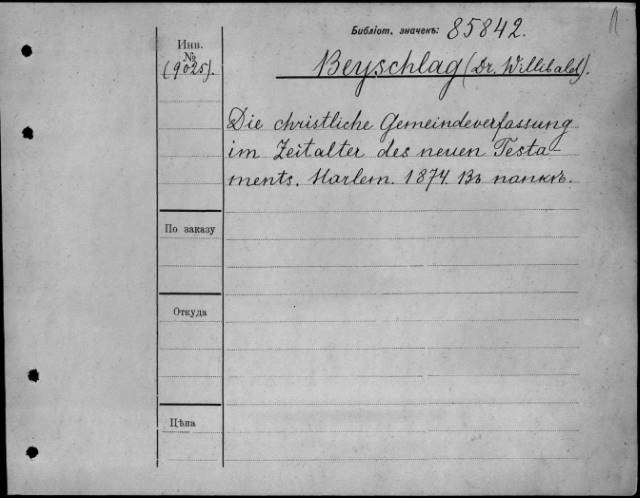 Библіот. значекъ: 85842.
Инв.
№
(9025).
Beyschlag (Dr. Willibald).
Die christliche Gemeindeverfassung
im Zeitalter des neuen Testa-
ments. Harlem. 1874. Въ папкѣ.
По заказу
Откуда
Цѣна